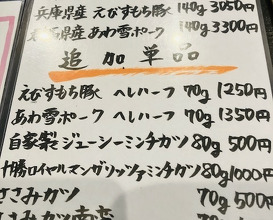 兵庫県産 えびすもち豚 140g 3050円
県産 あわ雪ポーク 140g 3300円
追加単品
えびすもち豚 ヘレハーフ 70g 1250円
あわ雪ポーク ヘレハーフ 70g 1350円
自家製ジューシーミンチカツ 80g 500円
十勝ロイヤルマンガリッツァミンチカツ 80g 1000円
ささみカツ 70g 500円
ささみカツ南蛮